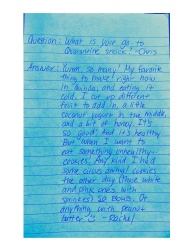 Question: What is your go to
Quarantine snack? -Chris
Answer: Umm so many! My favorite
thing to make right now
is and eating it
cold. I cut up different
fruit to add in a little
coconut yogurt in the middle,
and a bit of honey. It's
so good! And it's healthy
But when I want to
eat something unhealthy--
cookies. Any kind. I had
some circus animal cookies
the other day (those white
and pink ones with
sprinkles) SO BOMB. Or
anything with peanut
butter - Rachel